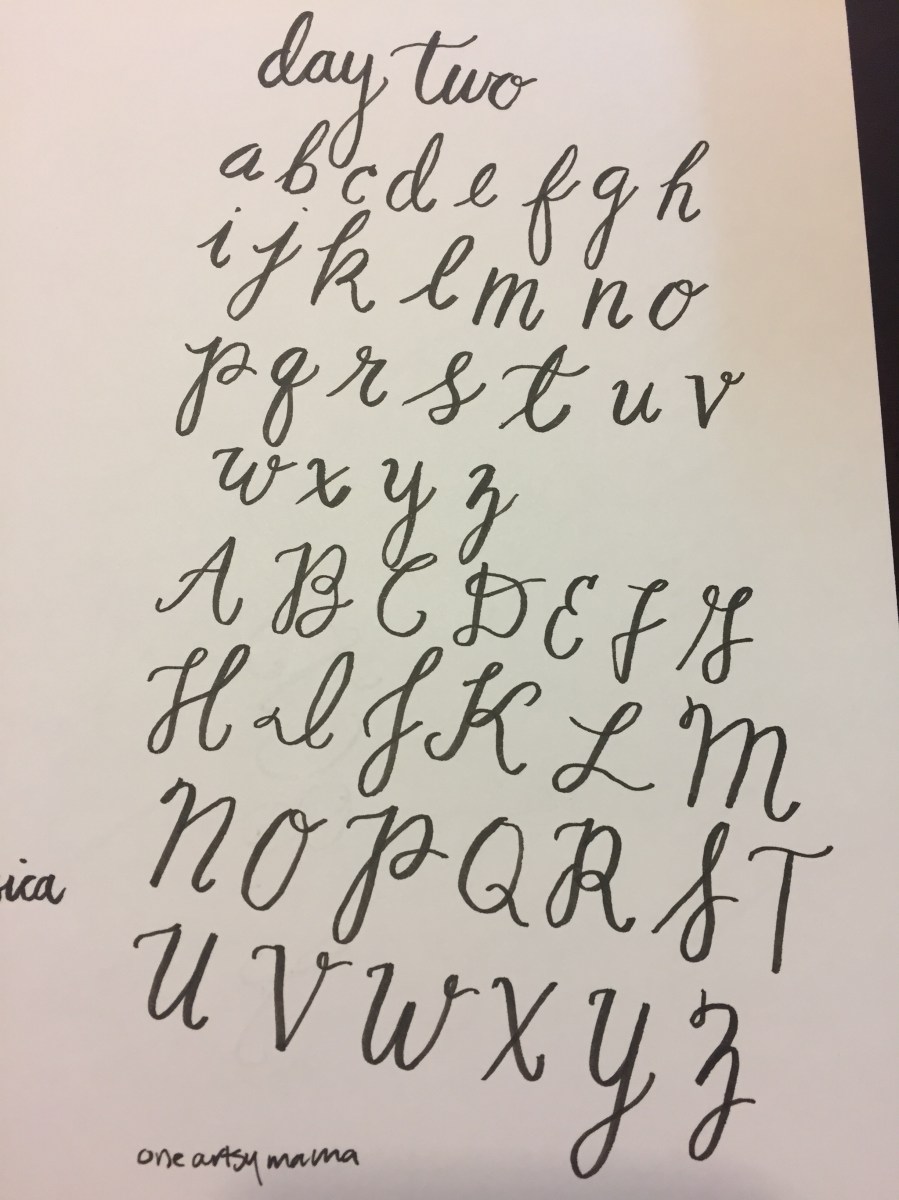 day two
a b c d e f g h
i j k l m n o
p q r s t u v
w x y z
A B C D E F G
H I J K L M
N O P Q R S T
ica
U V W X Y Z
one artsy mama